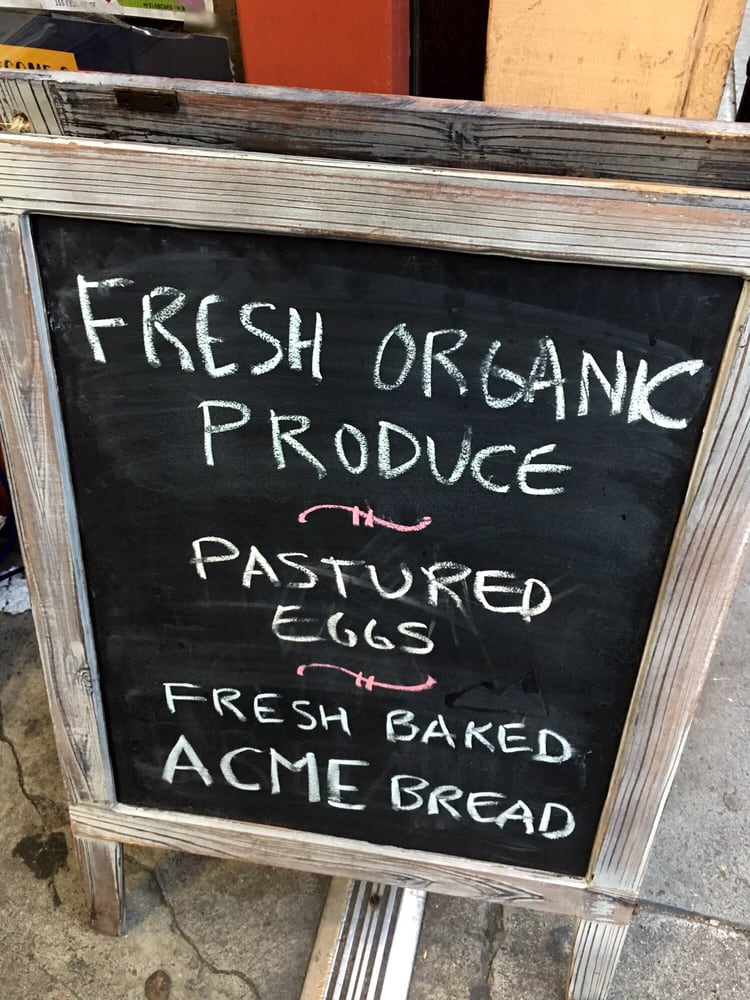 FRESH ORGANIC
PRODUCE
PASTURED
EGGS
FRESH BAKED
ACME BREAD